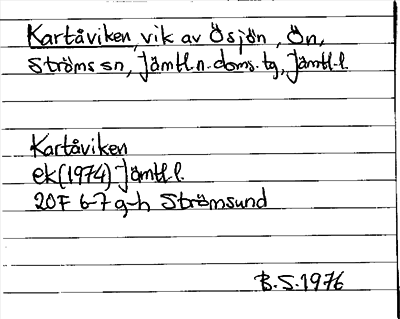 Kartåviken, vik av Ösjön, Ön,
Ströms sn, Jämtl.n.doms.tg, Jämtl.l.
Kartåviken
ek(1974) Jämtl.l.
20F 6-7 g-h Strömsund
B.S.1976